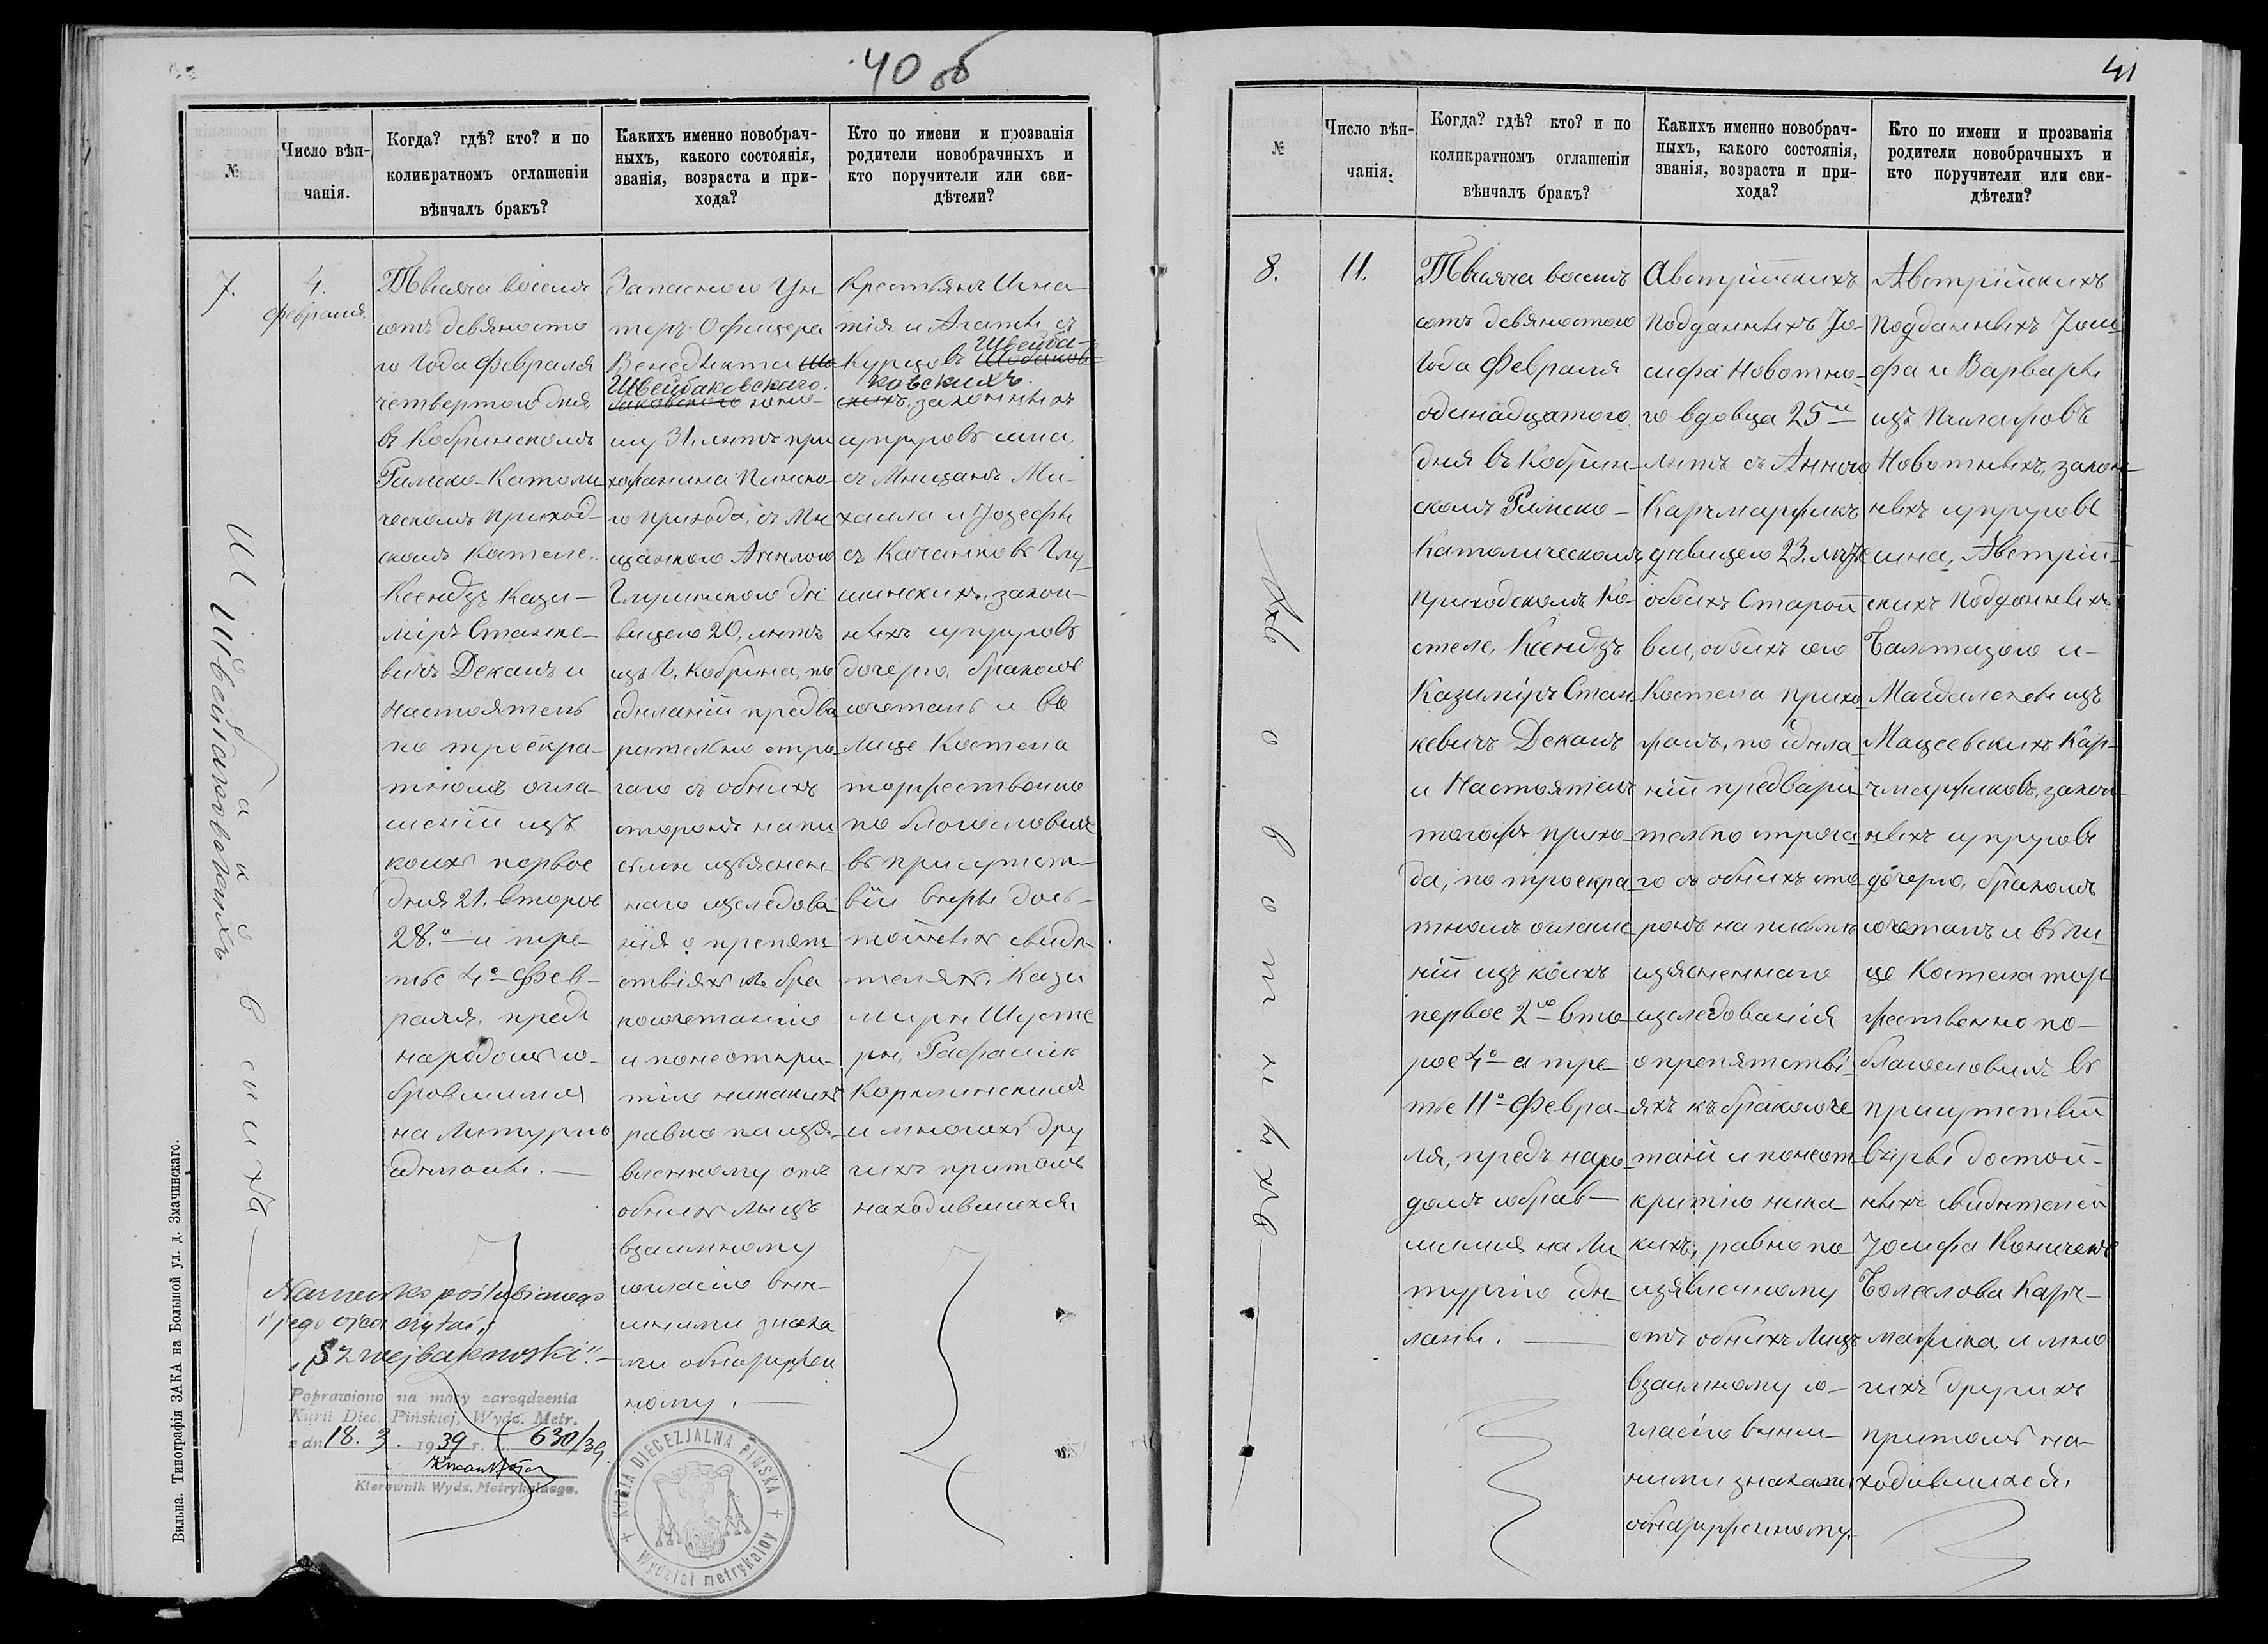 40 об
№
Число вѣн-
чанія.
Когда? гдѣ? кто? и по
коликратномъ оглашеніи
вѣнчалъ бракъ?
Какихъ именно новобрач-
ныхъ, какого состоянія,
званія, возраста и при-
хода?
Кто по имени и прозванія
родители новобрачныхъ и
кто поручители или сви-
дѣтели?
7.
4.
февраля.
Тысяча восемь
сотъ девяносто
го Года Февраля
четвертого дня
въ Кобринскомъ
Римско-Католи
ческомъ приход-
скомъ Костеле.
Ксендзъ Кази-
міръ Станке-
вичъ Деканъ и
Настоятель
по троекра-
тномъ огла-
шеніи изъ
коихъ первое
дня 21. второе
28.о и тре-
тье 4о Фев-
раля, предъ
народомъ со-
бравшимся
на Литургію
сдѣланы.
Запасного Ун-
теръ-Офицера
Венедикта
Швейбаковскаго.
юно-
шу 31. лѣтъ при
хожанина Пинско-
го прихода, съ Мѣ
щанкою Анѣлою
Глушинскою дѣ
вицею 20, лѣтъ
изъ Г. Кобрина, по
сдѣланіи предва
рительно стро
гаго съ обѣихъ
сторонъ на пи
сьмѣ изъяснен-
наго изслѣдова
нія о препят
ствіяхъ къ бра
косочетанію
и понеоткры-
тію никакихъ
равно по изъя-
вленному отъ
обѣихъ лицъ
взаимному
согласію внѣ-
шними знака
ми обнаружен
ному.
Крестьянъ Игна-
тія и Агаты съ
Курцовъ Швейба-
ковскихъ.
законныхъ
супруговъ сына,
съ Мѣщанъ Ми-
хаила и Іозефы
съ Качанковъ Глу
шинскихъ, закон-
ныхъ супруговъ
дочерью, бракомъ
сочеталъ и въ
лице Костела
торжественно
по благословилъ
въ присутст-
віи вѣры дос-
тойныхъ свидѣ-
телей. Кази
міра Шусте
ра, Рафаила
и многихъ дру
гихъ притомъ
находившихся.
Швейбаковскихъ
Nazwisko poślubionego
i jego ojca czytać:
„Szwejbakowski".
Poprawiono na mocy zarządzenia
Kurii Diec. Pińskiej, Wydz. Metr.
z dn. 18. 3. 1939 r. L. 630/39
Kierownik Wydz. Metrykalnego.
KURIA DIECEZJALNA PIŃSKA
Wydział metrykalny
Вильна. Типографія ЗАКА на Большой ул. д. Змачинскаго.
41
№
Число вѣн-
чанія:
Когда? гдѣ? кто? и по
коликратномъ оглашеніи
вѣнчалъ бракъ?
Какихъ именно новобрач-
ныхъ, какого состоянія,
званія, возраста и при-
хода?
Кто по имени и прозванія
родители новобрачныхъ и
кто поручители или сви-
дѣтели?
8.
11.
Тысяча восемь
сотъ девяностого
Года Февраля
одинадцатого
дня въ Кобрин-
скомъ Римско-
Католическомъ
приходскомъ Ко-
стеле, Ксендзъ
Казиміръ Стан
кевичъ Деканъ
и Настоятель
тогожъ прихо
да, по троекра
тномъ оглаше
ніи изъ коихъ
первое 2го вто
рое 4о а тре-
тье 11о Февра-
ля, предъ наро
домъ собрав-
шимся на Ли
тургію сдѣ-
ланы.
Австрійскихъ
Подданныхъ Іо-
сифа Новотно-
го вдовца 25ти
лѣтъ съ Анною
Карчмаржикъ
дѣвицею 23. лѣтъ
обоихъ Старой
вси, обоихъ сего
Костела прихо
жанъ, по сдѣла
ніи предвари
тельно строга
го съ обѣихъ сто
ронъ на письмѣ
изясненнаго
изслѣдованія
о препятстві-
яхъ къ бракосоче
танію и понеот
крытію ника
кихъ, равно по
изявленному
отъ обѣихъ лицъ
взаимному со-
гласію внѣш-
ними знаками
обнаруженному.
Австрійскихъ
Подданныхъ Іоси
фа и Варвары
изъ Пиларовъ
Новотныхъ, закон-
ныхъ супруговъ
сына, Австрій-
скихъ Подданныхъ
Бальтазара и
Магдалены изъ
Мацеевскихъ Кар-
чмаржиковъ, закон-
ныхъ супруговъ
дочерью, бракомъ
сочеталъ и въ ли-
це Костела тор
жественно по-
благословилъ въ
присутствіи
вѣры достой-
ныхъ свидѣтелей
Іосифа
Болеслова Карч-
маржика, и мно
гихъ другихъ
притомъ на-
ходившихся.
Новотныхъ